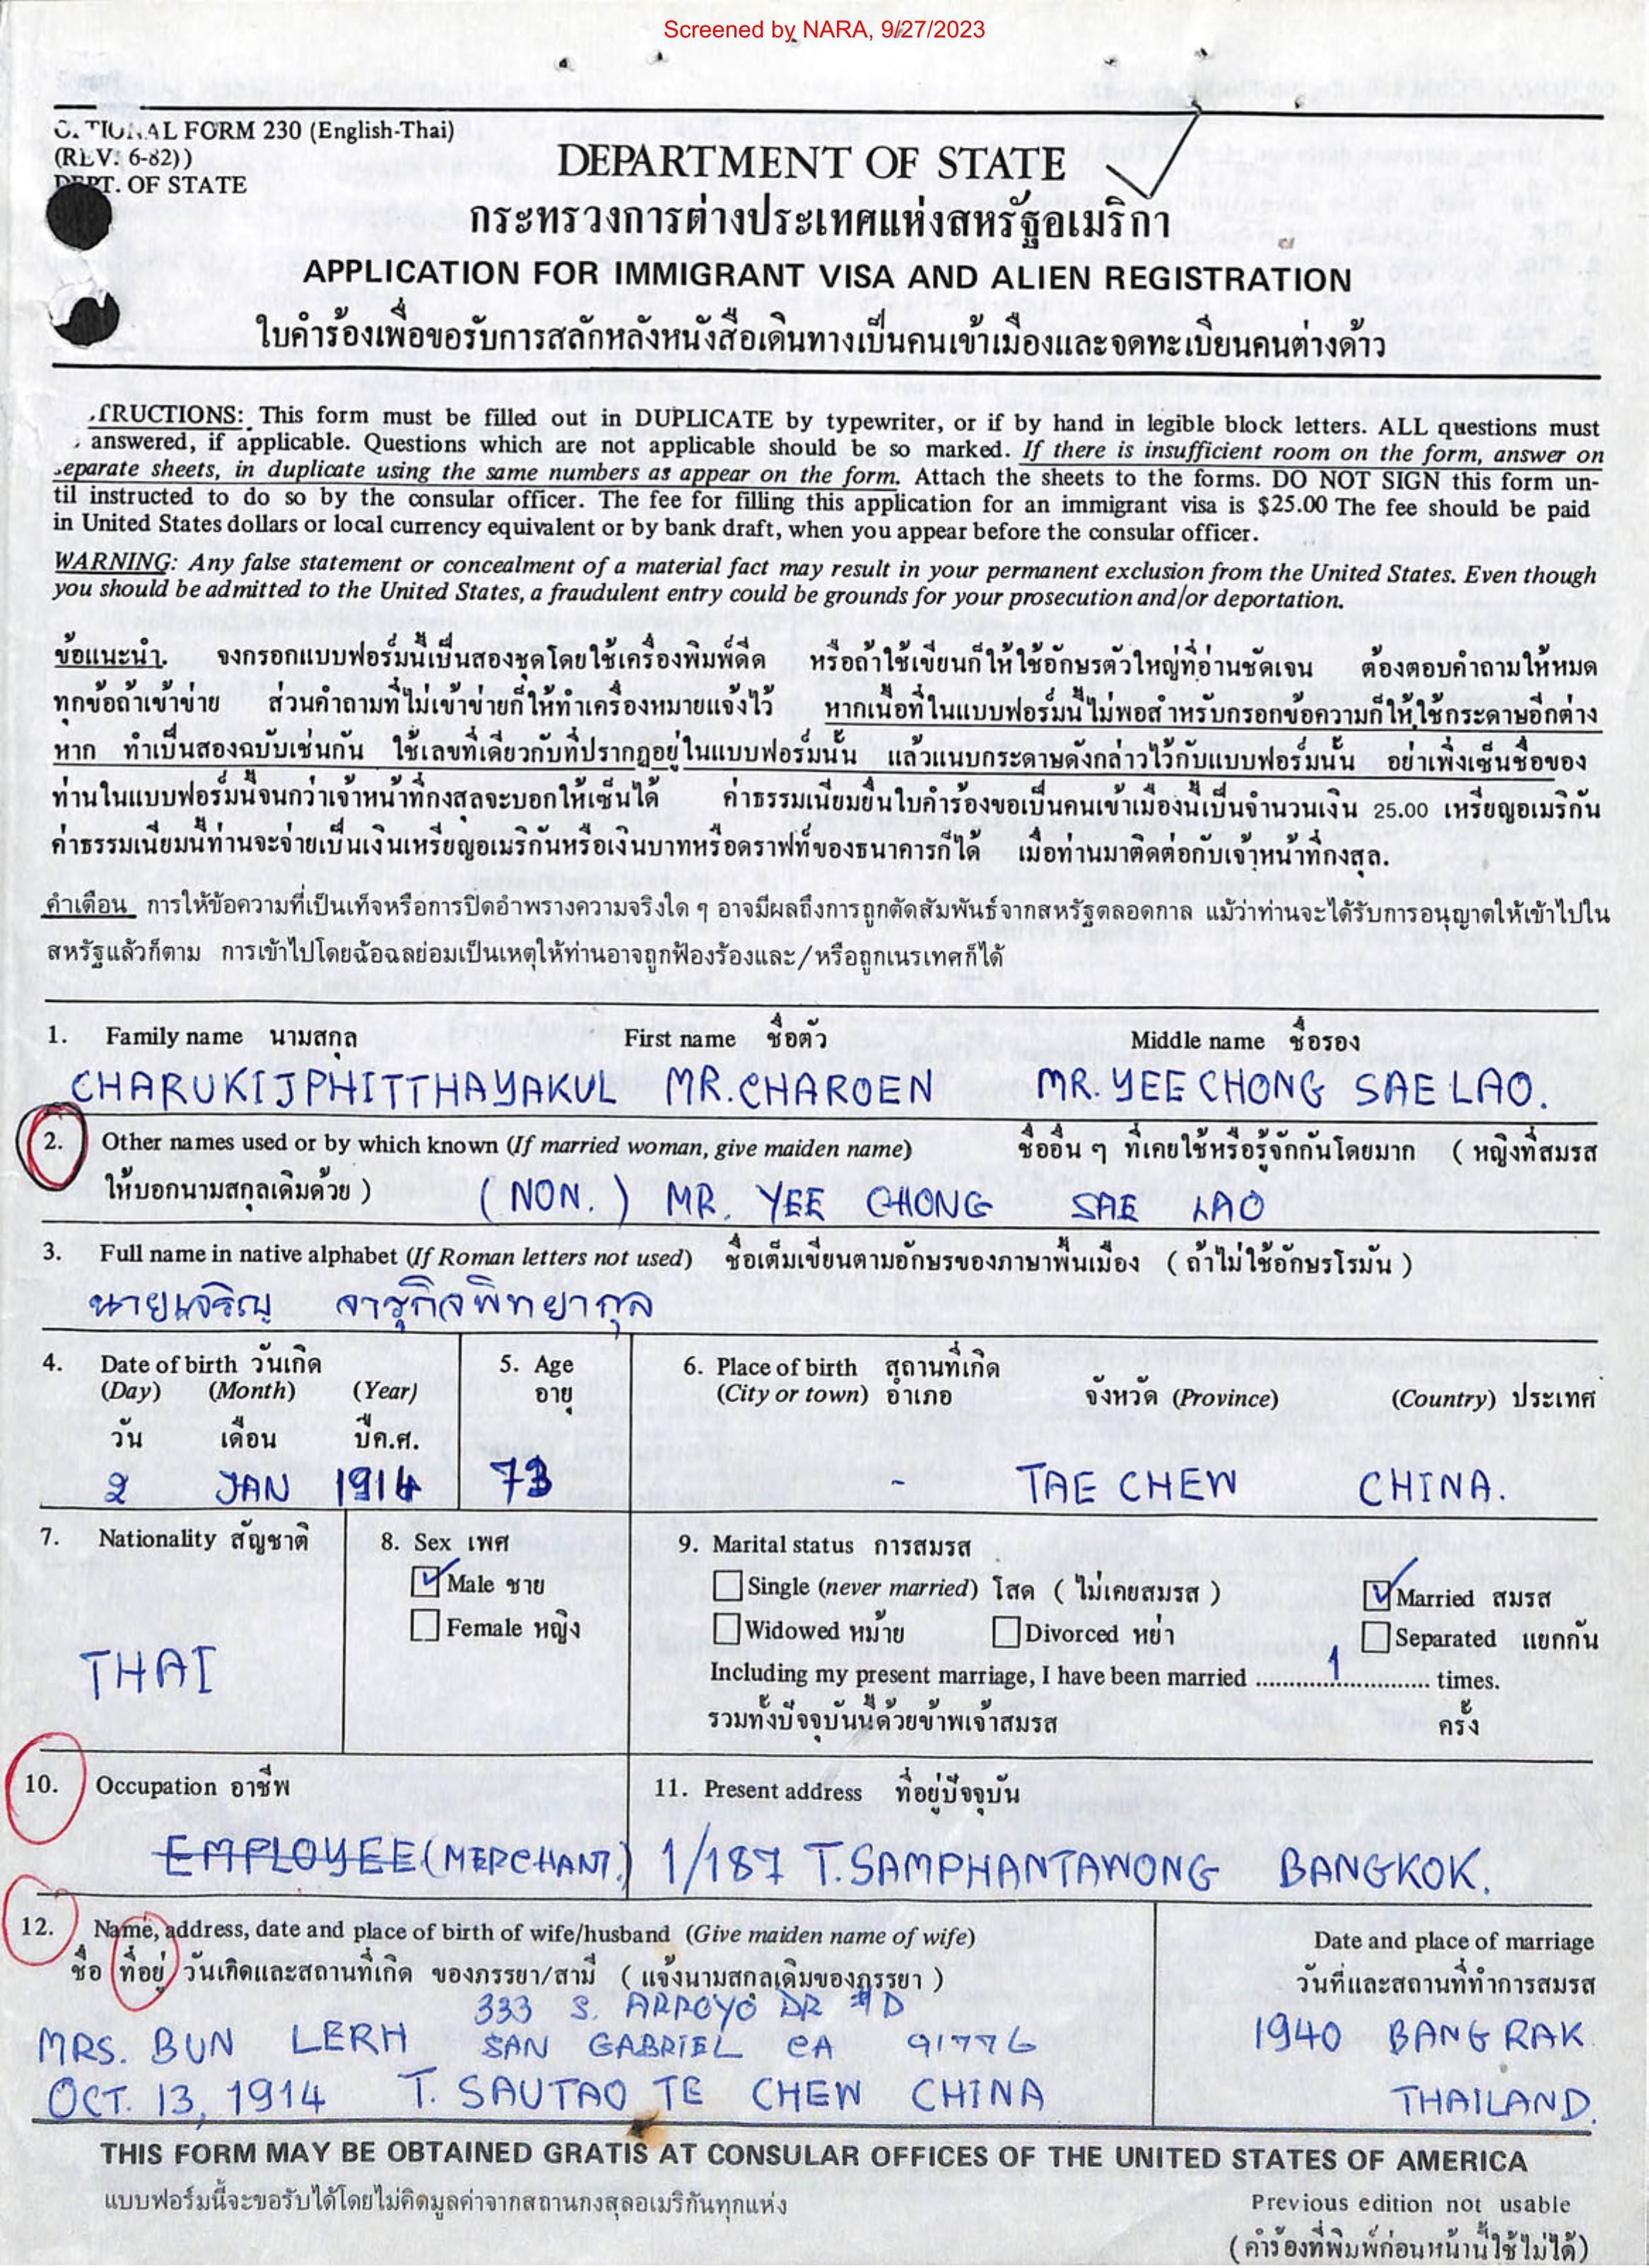 Screened by NARA, 9/27/2023
FORM 230 (English-Thai)
(REV. 6-82))
DEPT. OF STATE
DEPARTMENT OF STATE
กระทรวงการต่างประเทศแห่งสหรัฐอเมริกา
APPLICATION FOR IMMIGRANT VISA AND ALIEN REGISTRATION
ใบคำร้องเพื่อขอรับการสลักหลังหนังสือเดินทางเป็นคนเข้าเมืองและจดทะเบียนคนต่างด้าว
TRUCTIONS: This form must be filled out in DUPLICATE by typewriter, or if by hand in legible block letters. ALL questions must
answered, if applicable. Questions which are not applicable should be so marked. If there is insufficient room on the form, answer on
separate sheets, in duplicate using the same numbers as appear on the form. Attach the sheets to the forms. DO NOT SIGN this form un-
til instructed to do so by the consular officer. The fee for filling this application for an immigrant visa is $25.00 The fee should be paid
in United States dollars or local currency equivalent or by bank draft, when you appear before the consular officer.
WARNING: Any false statement or concealment of a material fact may result in your permanent exclusion from the United States. Even though
you should be admitted to the United States, a fraudulent entry could be grounds for your prosecution and/or deportation.
ข้อแนะนำ. จงกรอกแบบฟอร์มนี้เป็นสองชุดโดยใช้เครื่องพิมพ์ดีด หรือถ้าใช้เขียนก็ให้ใช้อักษรตัวใหญ่ที่อ่านชัดเจน ต้องตอบคำถามให้หมด
ทุกข้อถ้าเข้าข่าย ส่วนคำถามที่ไม่เข้าข่ายก็ให้ทำเครื่องหมายแจ้งไว้ หากเนื้อที่ในแบบฟอร์มนี้ไม่พอสำหรับกรอกข้อความก็ให้ใช้กระดาษอีกต่าง
หาก ทำเป็นสองฉบับเช่นกัน ใช้เลขที่เดียวกับที่ปรากฏอยู่ในแบบฟอร์มนั้น แล้วแนบกระดาษดังกล่าวไว้กับแบบฟอร์มนั้น อย่าเพิ่งเซ็นชื่อของ
ท่านในแบบฟอร์มนี้จนกว่าเจ้าหน้าที่กงสุลจะบอกให้เซ็นได้ ค่าธรรมเนียมยื่นใบคำร้องขอเป็นคนเข้าเมืองนี้เป็นจำนวนเงิน 25.00 เหรียญอเมริกัน
ค่าธรรมเนียมนี้ท่านจะจ่ายเป็นเงินเหรียญอเมริกันหรือเงินบาทหรือดราฟท์ของธนาคารก็ได้ เมื่อท่านมาติดต่อกับเจ้าหน้าที่กงสุล.
คำเตือน การให้ข้อความที่เป็นเท็จหรือการปิดอำพรางความจริงใด ๆ อาจมีผลถึงการถูกตัดสัมพันธ์จากสหรัฐตลอดกาล แม้ว่าท่านจะได้รับการอนุญาตให้เข้าไปใน
สหรัฐแล้วก็ตาม การเข้าไปโดยฉ้อฉลย่อมเป็นเหตุให้ท่านอาจถูกฟ้องร้องและ/หรือถูกเนรเทศก็ได้
1. Family name นามสกุล First name ชื่อตัว Middle name ชื่อรอง
CHARUKIJPHITTHAYAKUL MR.CHAROEN MR. YEE CHONG SAE LAO.
2. Other names used or by which known (If married woman, give maiden name) ชื่ออื่น ๆ ที่เคยใช้หรือรู้จักกันโดยมาก ( หญิงที่สมรส
ให้บอกนามสกุลเดิมด้วย ) ( NON. ) MR. YEE CHONG SAE LAO
3. Full name in native alphabet (If Roman letters not used) ชื่อเต็มเขียนตามอักษรของภาษาพื้นเมือง ( ถ้าไม่ใช้อักษรโรมัน )
นายเจริญ จารุกิจพิทยากุล
4. Date of birth วันเกิด 5. Age 6. Place of birth สถานที่เกิด
(Day) (Month) (Year) อายุ (City or town) อำเภอ จังหวัด (Province) (Country) ประเทศ
วัน เดือน ปีค.ศ.
2 JAN 1914 73 - TAE CHEW CHINA.
7. Nationality สัญชาติ 8. Sex เพศ 9. Marital status การสมรส
Male ชาย Single (never married) โสด ( ไม่เคยสมรส ) Married สมรส
Female หญิง Widowed หม้าย Divorced หย่า Separated แยกกัน
THAI Including my present marriage, I have been married ....1.... times.
รวมทั้งปัจจุบันนี้ด้วยข้าพเจ้าสมรส ครั้ง
10. Occupation อาชีพ 11. Present address ที่อยู่ปัจจุบัน
EMPLOYEE (MERCHANT.) 1/187 T.SAMPHANTAWONG BANGKOK.
12. Name, address, date and place of birth of wife/husband (Give maiden name of wife) Date and place of marriage
ชื่อ ที่อยู่ วันเกิดและสถานที่เกิด ของภรรยา/สามี ( แจ้งนามสกุลเดิมของภรรยา ) วันที่และสถานที่ทำการสมรส
333 S. ARROYO DR #D
MRS. BUN LERH SAN GABRIEL CA 91776 1940 BANG RAK
OCT. 13, 1914 T. SAUTAO TE CHEW CHINA THAILAND.
THIS FORM MAY BE OBTAINED GRATIS AT CONSULAR OFFICES OF THE UNITED STATES OF AMERICA
แบบฟอร์มนี้จะขอรับได้โดยไม่คิดมูลค่าจากสถานกงสุลอเมริกันทุกแห่ง Previous edition not usable
(คำร้องที่พิมพ์ก่อนหน้านี้ใช้ไม่ได้)